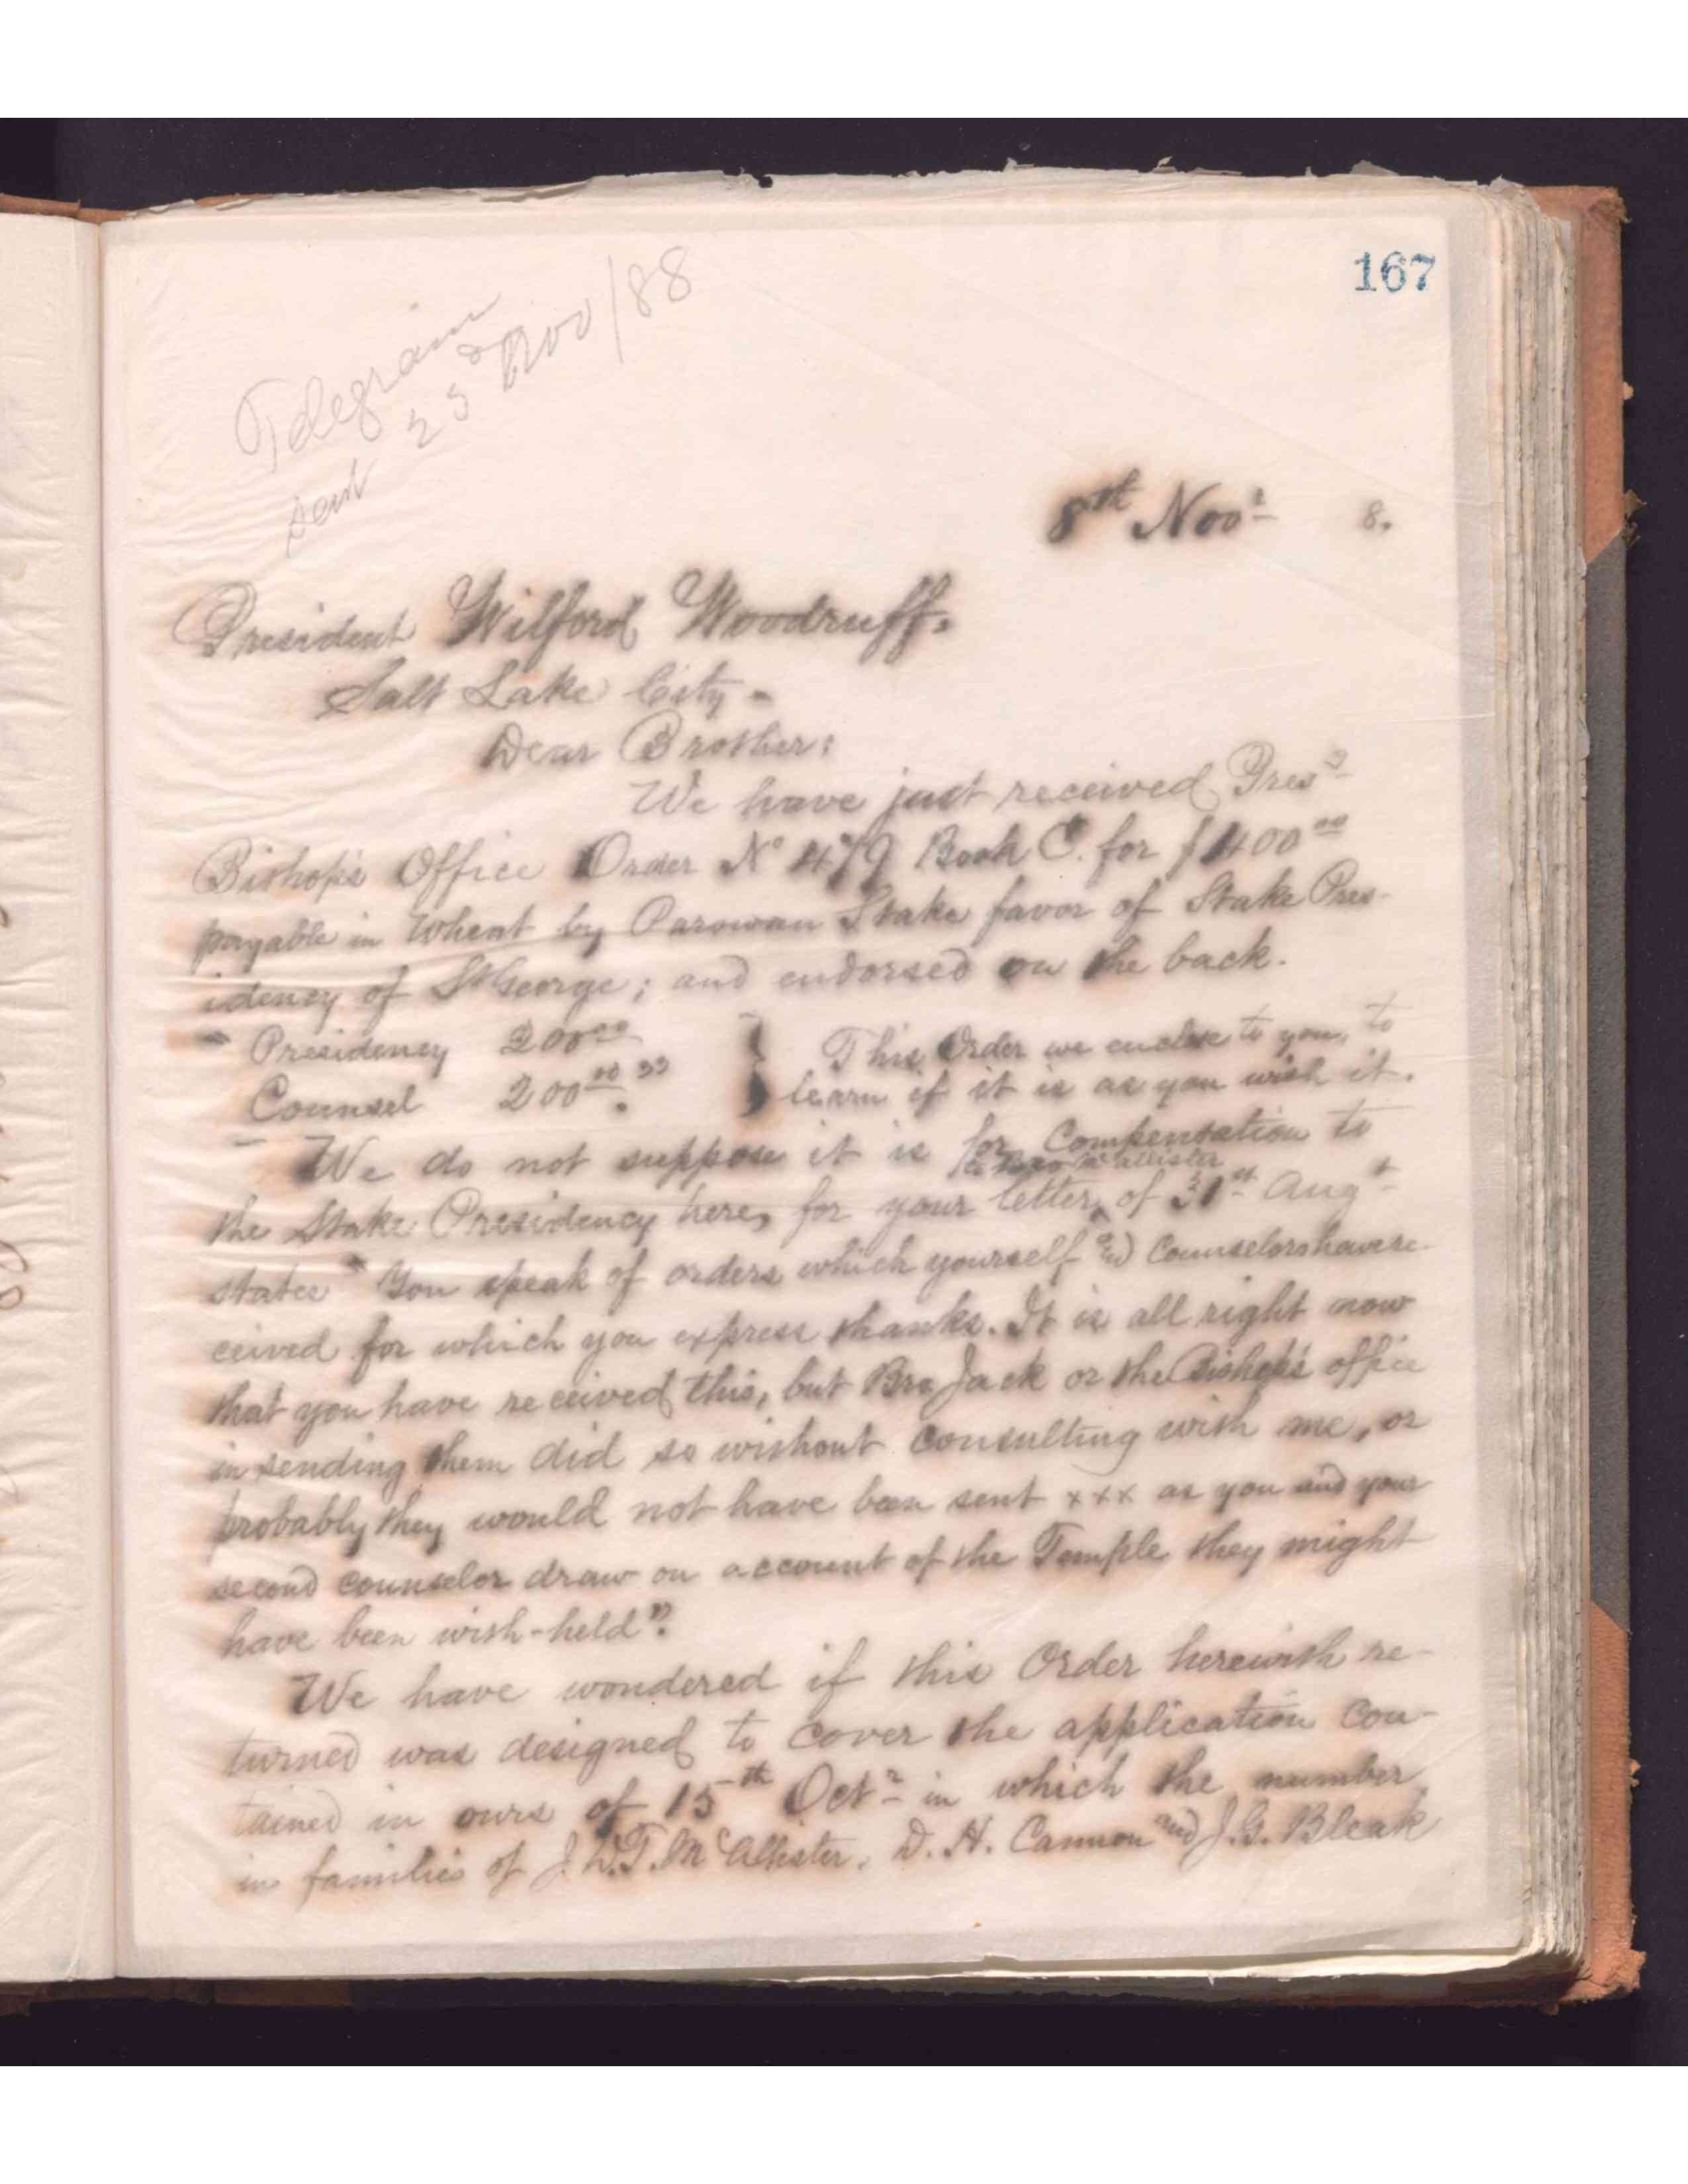 167
Telegram
sent 23d Nov/88
8th Novr 8.
President Wilford Woodruff.
Salt Lake City.
Dear Brother:
We have just received Presg
Bishop's Office Order No 479 Book C. for $400.00
payable in Wheat by Parowan Stake favor of Stake Pres-
idency of St George; and endorsed on the back.
" Presidency 200.00 } This Order we enclose to you, to
Counsel 200.00." } learn if it is as you wish it.
We do not suppose it is for Compensation to
to Bro McAllister
the Stake Presidency here, for your letter ‸ of 31st Augt
states "You speak of orders which yourself and Counselors have re-
ceived for which you express thanks. It is all right now
that you have received this, but Bro Jack or the Bishop's office
in sending them did so without consulting with me, or
probably they would not have been sent xxx as you and your
second counselor draw on account of the Temple they might
have been with-held".
We have wondered if this Order herewith re-
turned was designed to cover the application con-
tained in ours of 15th Octr in which the number
in families of J. D. T. McAllister, D. H. Cannon and J. G. Bleak